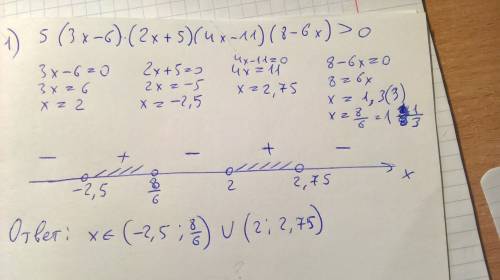 1) 5 (3x-6)·(2x+5)(4x-11)(8-6x) > 0
3x-6=0
3x=6
x=2
2x+5=0
2x=-5
x=-2,5
4x-11=0
4x=11
x=2,75
8-6x=0
8=6x
x=1,3(3)
x=8/6=1 1/3
- + - + -
-2,5 8/6 2 2,75 x
Ответ: x∈(-2,5; 8/6) ∪ (2; 2,75)